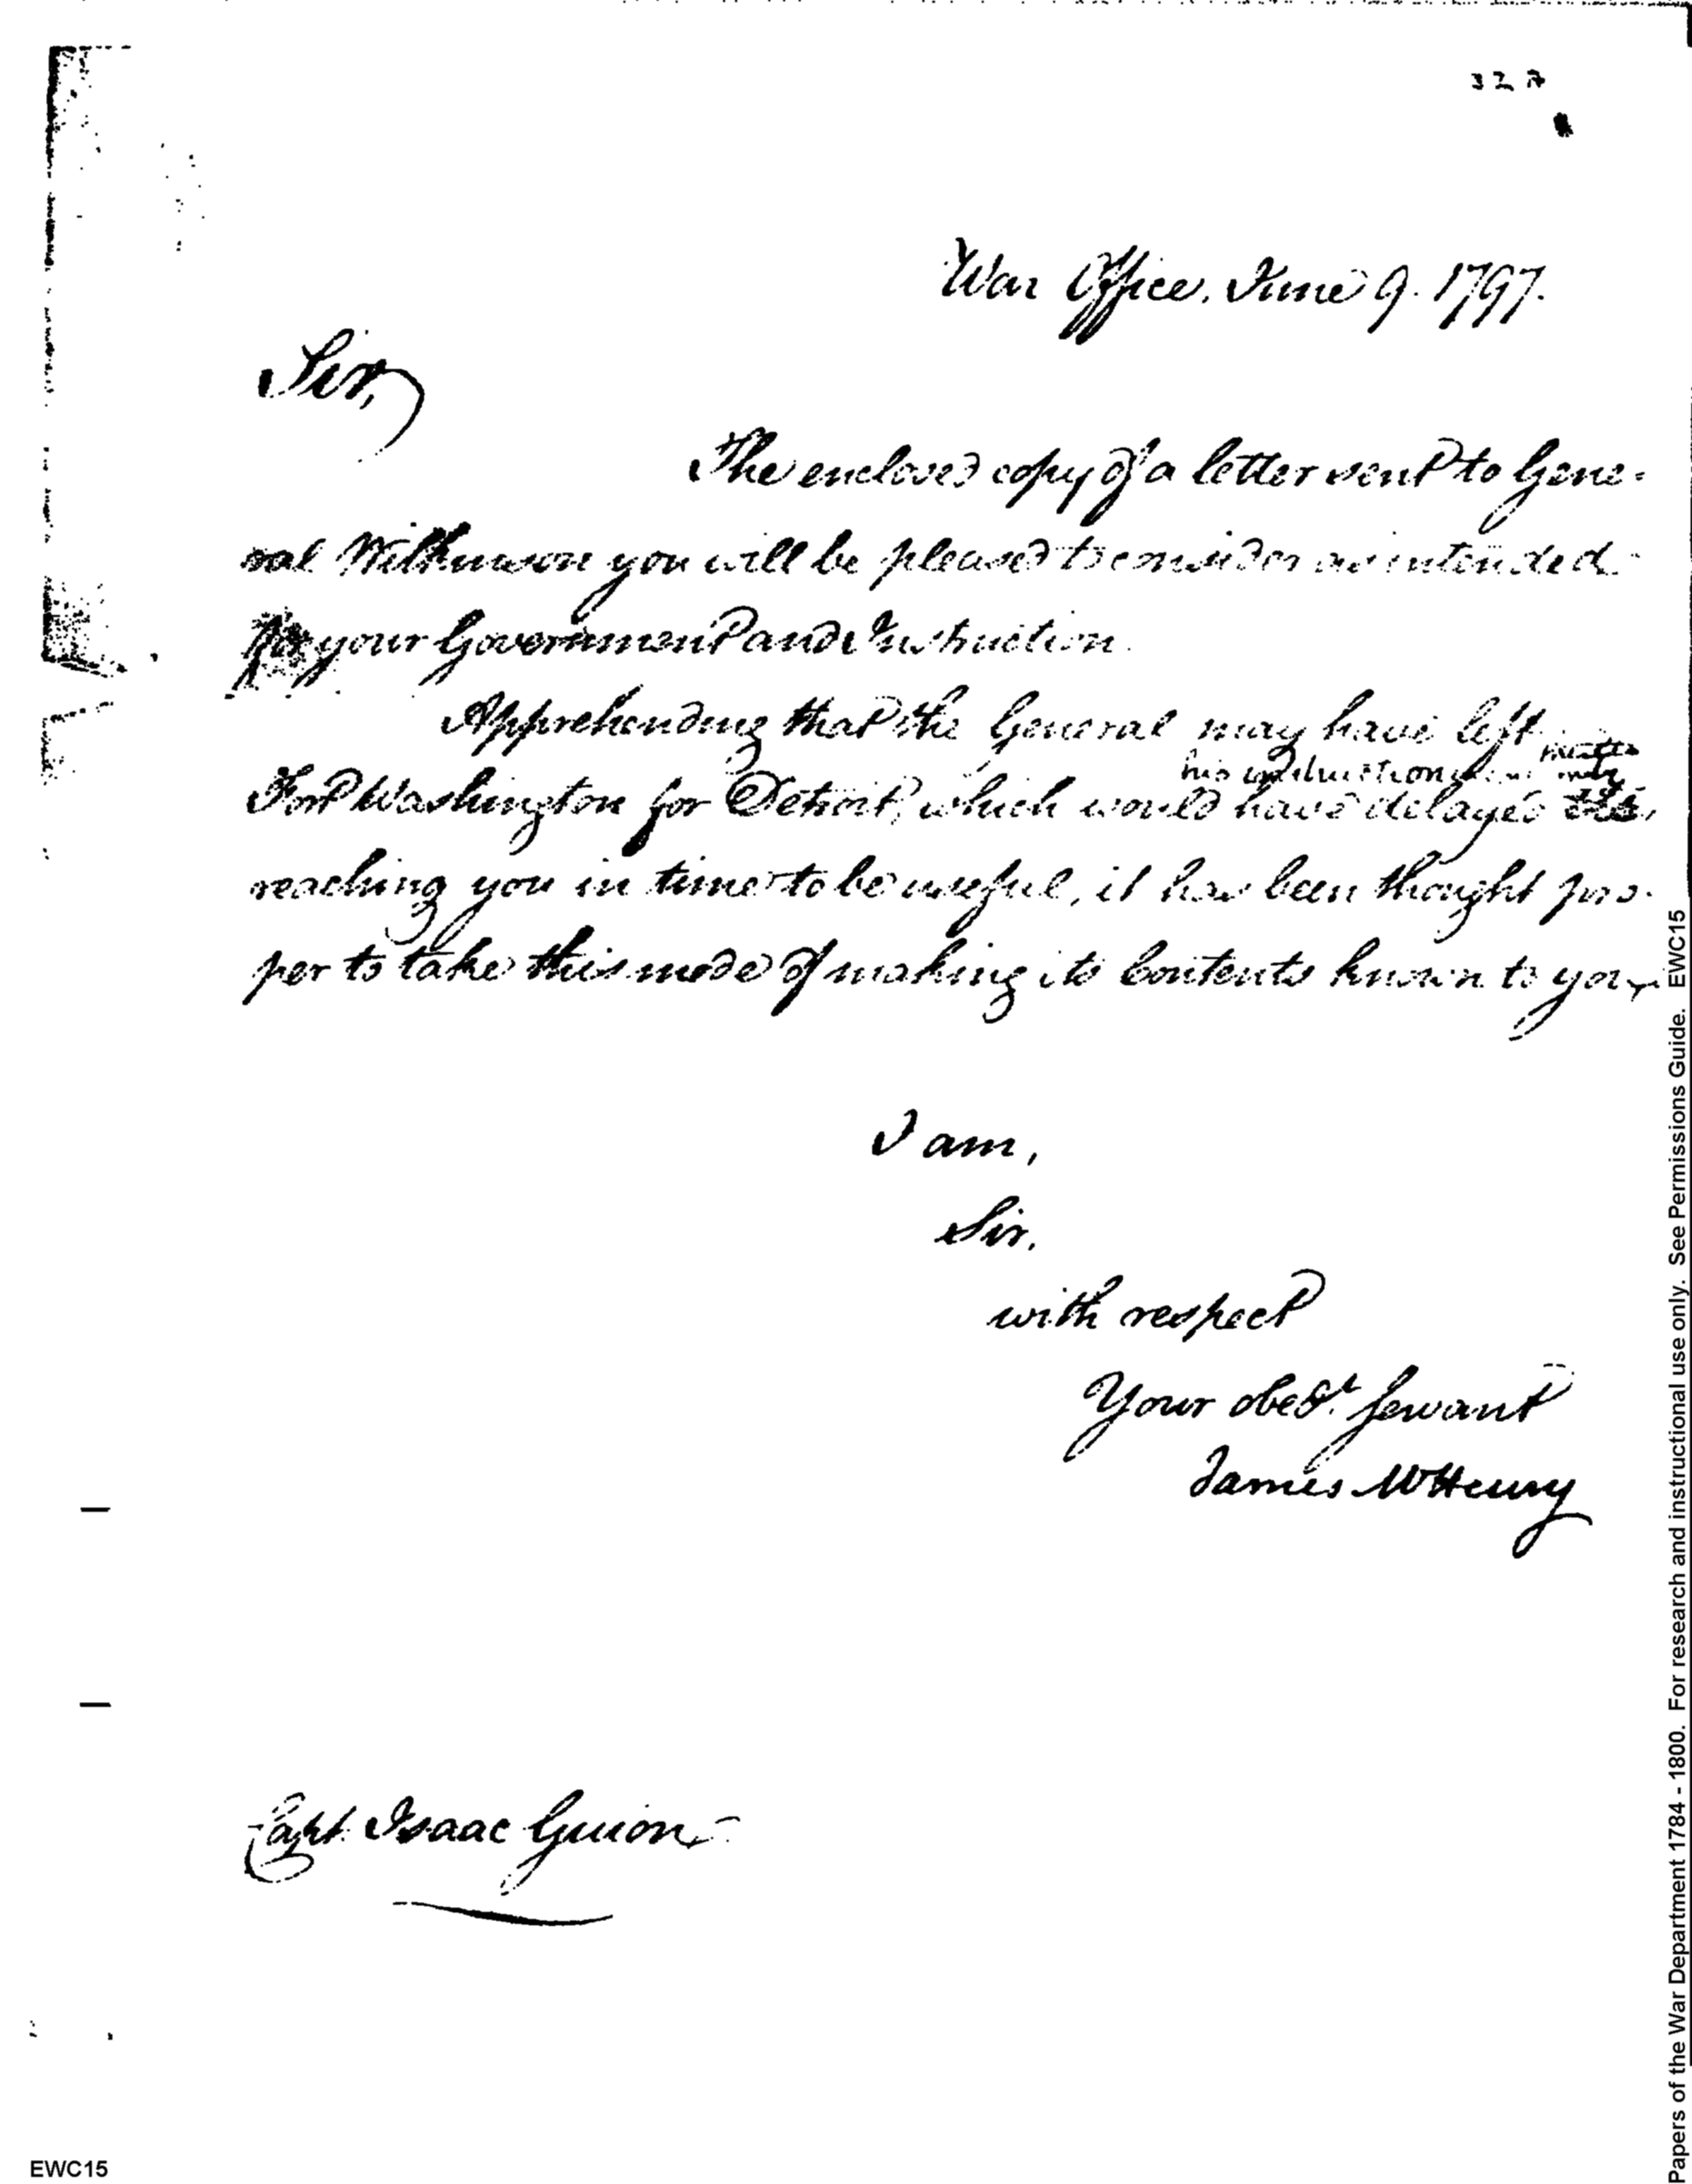 32
War Office, June 9. 1797.
Sir,
The enclosed copy of a letter sent to Gene-
ral Wilkinson you will be pleased to consider as intended
for your Government and Instruction.
Apprehending that the General may have left
his instructions
Fort Washington for Detroit, which would have delayed
reaching you in time to be useful, it has been thought pro-
per to take this mode of making its Contents known to you.
I am,
Sir,
with respect
Your obedt. Servant
James McHenry
Capt. Isaac Guion
EWC15
Papers of the War Department 1784 - 1800. For research and instructional use only. See Permissions Guide. EWC15